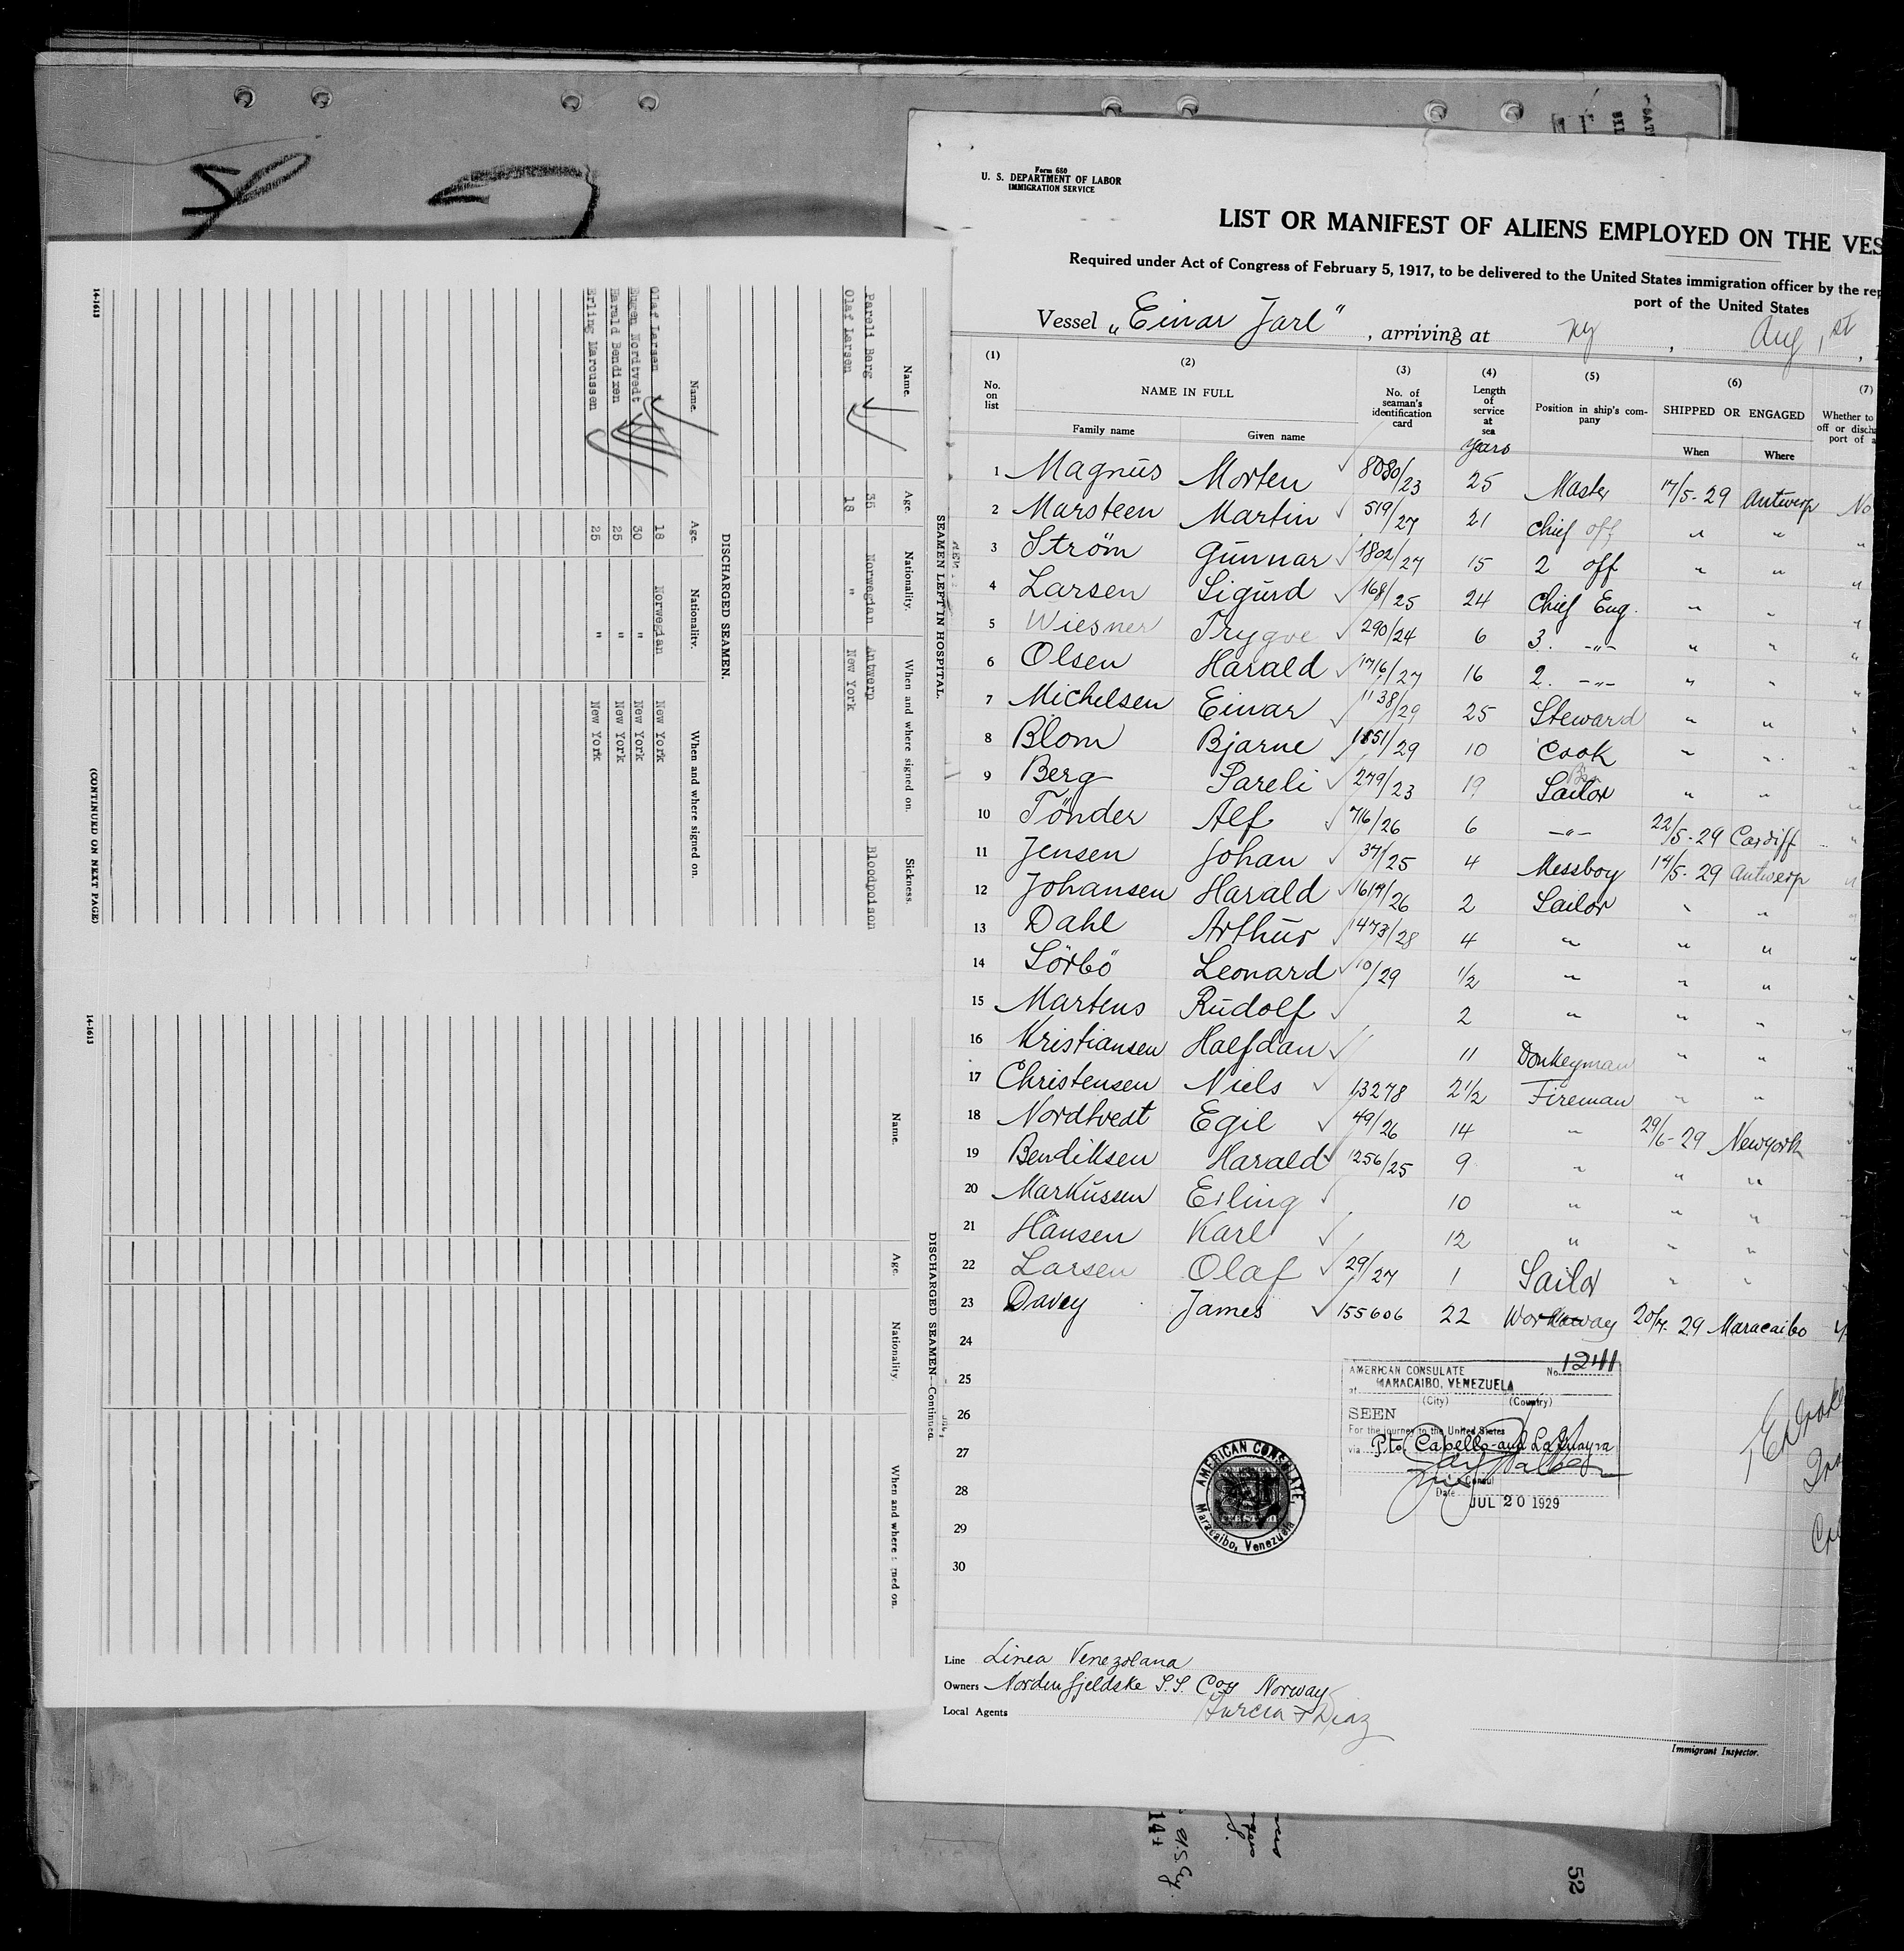 Form 680
U. S. DEPARTMENT OF LABOR
IMMIGRATION SERVICE
LIST OR MANIFEST OF ALIENS EMPLOYED ON THE VES
Required under Act of Congress of February 5, 1917, to be delivered to the United States immigration officer by the rep
port of the United States
Vessel „Einar Jarl", arriving at ny, Aug 1st,
(1) (2) (3) (4) (5) (6) (7)
No. on list NAME IN FULL No. of seaman's identification card Length of service at sea Position in ship's company SHIPPED OR ENGAGED Whether to
off or disch
port of a
Family name Given name years When Where
1 Magnus Morten 8080/23 25 Master 17/5-29 Antwerp No
2 Marsteen Martin 519/27 21 Chief off " " "
3 Ström Gunnar 1802/27 15 2 off " " "
4 Larsen Sigurd 168/25 24 Chief Eng. " " "
5 Wiesner Trygve 290/24 6 3. -"- " " "
6 Olsen Harald 1716/27 16 2. -"- " " "
7 Michelsen Einar 1138/29 25 Steward " " "
8 Blom Bjarne 1851/29 10 Cook " " "
9 Berg Pareli 279/23 19 Sailor " " "
10 Tönder Alf 716/26 6 -"- 22/5-29 Cardiff "
11 Jensen Johan 37/25 4 Messboy 17/5-29 Antwerp "
12 Johansen Harald 1619/26 2 Sailor " " "
13 Dahl Arthur 1473/28 4 " " " "
14 Sörbö Leonard 10/29 1/2 " " " "
15 Martens Rudolf 2 " " " "
16 Kristiansen Halfdan 11 Donkeyman " " "
17 Christensen Niels 13278 2 1/2 Fireman " " "
18 Nordtvedt Egil 49/26 14 " 29/6-29 Newyork "
19 Bendiksen Harald 1256/25 9 " " " "
20 Markussen Erling 10 " " " "
21 Hansen Karl 12 " " " "
22 Larsen Olaf 29/27 1 Sailor " " "
23 Davey James 155606 22 Workaway 20/7-29 Maracaibo
24
25
26
27
28
29
30
AMERICAN CONSULATE No. 1241
at MARACAIBO, VENEZUELA
(City) (Country)
SEEN
For the journey to the United States
via Pto Cabello and La Guayra
Consul
Date JUL 20 1929
AMERICAN CONSULATE,
Maracaibo, Venezuela
Line Linea Venezolana
Owners Nordenfjeldske S.S. Coy Norway
Local Agents Garcia & Diaz
Immigrant Inspector.
SEAMEN LEFT IN HOSPITAL.
Name. Age. Nationality. When and where signed on. Sickness.
Pareli Berg 35 Norwegian Antwerp Bloodpoison
Olaf Larsen 18 " New York
DISCHARGED SEAMEN.
Name. Age. Nationality. When and where signed on.
Olaf Larsen 18 Norwegian New York
Eugen Nordtvedt 30 " New York
Harald Bendixen 25 " New York
Erling Marcussen 25 " New York
14-1613
(CONTINUED ON NEXT PAGE)
DISCHARGED SEAMEN—Continued.
Name. Age. Nationality. When and where signed on.
14-1613
52